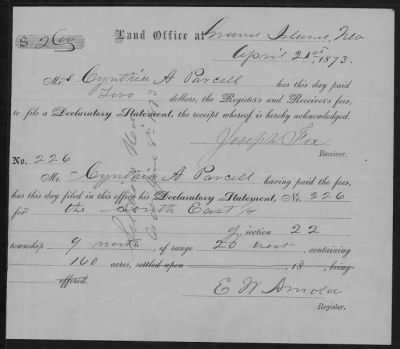 $ 2.00
Land Office at Grand Island, Neb
April 21st 1873.
Mrs Cynthia A Parcell has this day paid
Two dollars, the Register's and Receiver's fees,
to file a Declaratory Statement, the receipt whereof is hereby acknowledged.
Joseph Fox
Receiver.
No. 226
Mr Cynthia A Parcell having paid the fees,
has this day filed in this office his Declaratory Statement, No. 226
for the South East 1/4
of section 22
township 9 north, of range 20 west, containing
160 acres, settled upon , 18 , being
offered.
E W Arnold
Register.